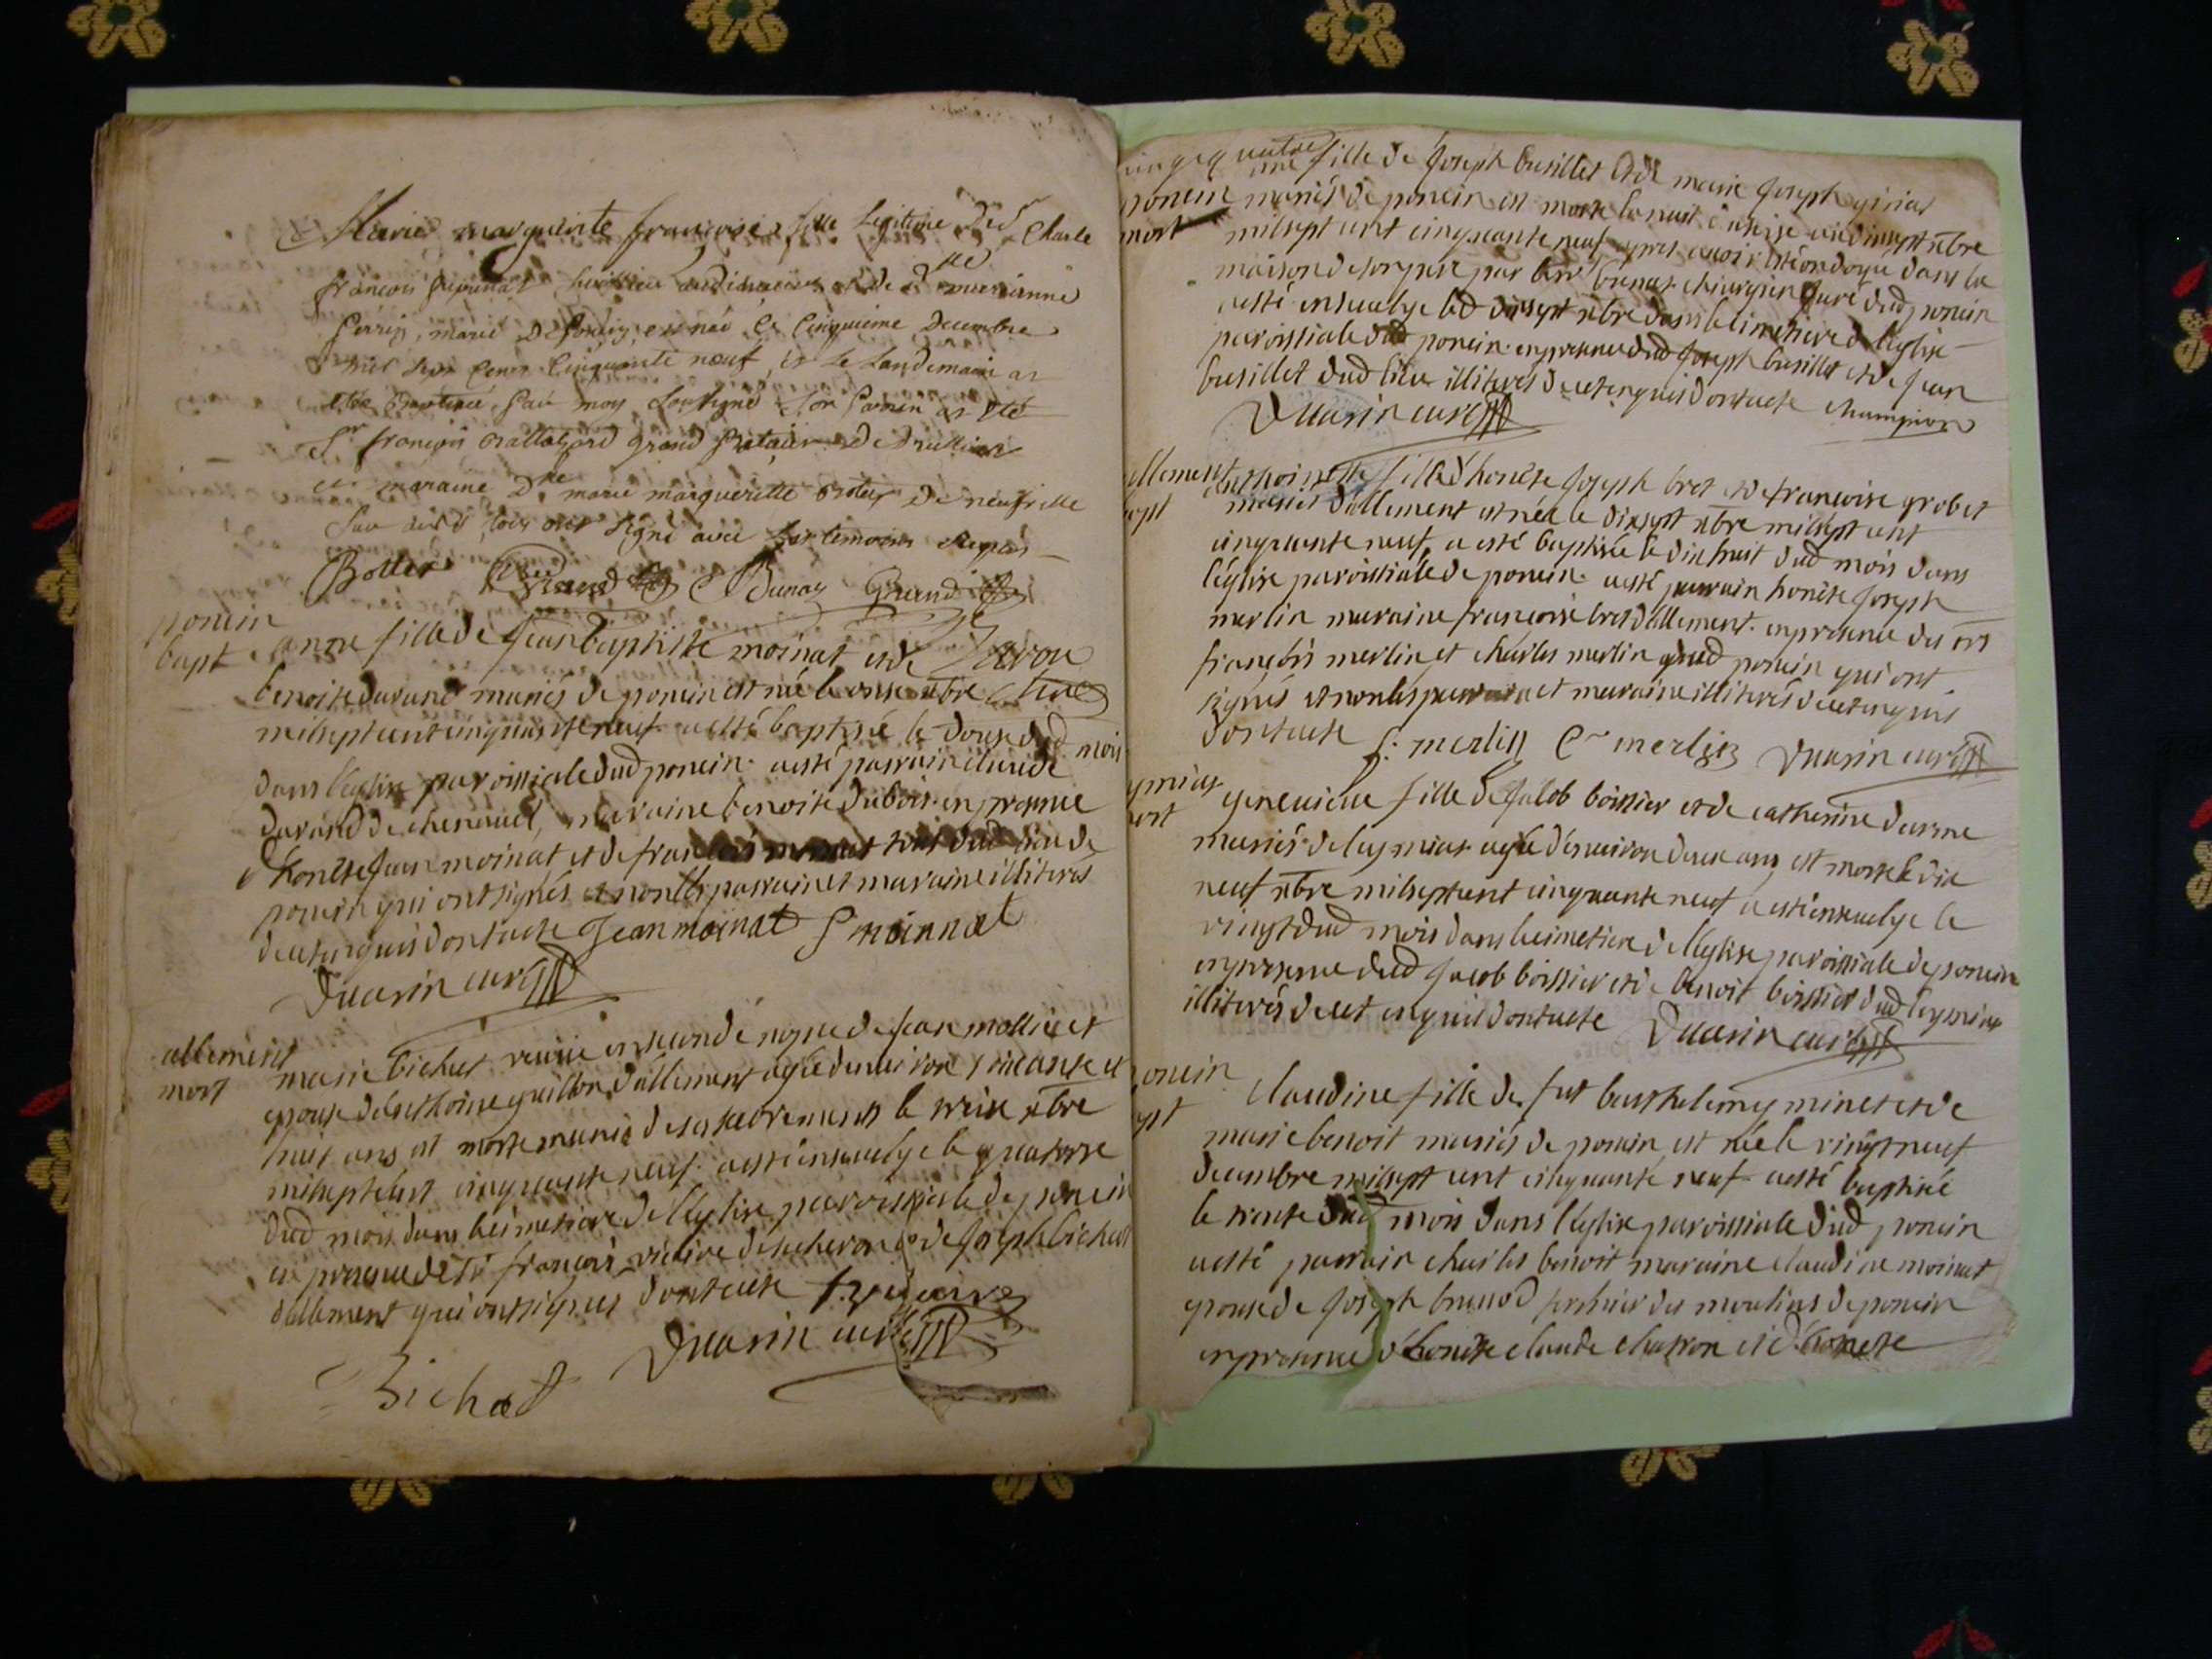 Marie marguerite francoise fille legitime de Sr Charle
francois huissier audiancier et de Dlle marianne
Perrin, marié de Poncin, est née le Cinquieme Decembre
mil sept Cents Cinquante neuf, et le Landemain as
été Baptisée, par moy Soussigné Son Parrin as été
Sr françois grand
et maraine Dlle marie marguerite Botex de neufville
Sur tous ont signé avec les temoins
Bottex Dunay Grand
poncin
bapt
anne fille de Jean baptiste moinat et de
benoite durand mariés de poncin est née le onse xbre
mil sept cent cinquante neuf a esté baptisé le douse dud mois
dans l'eglise paroissiale dud poncin. a esté parrain claude
durand de chenavel, maraine benoite dubois en presence
d'honête Jean moinat et de francois moinat tous dud lieu de
poncin qui ont signés et non les parrain et maraine illiterés
de ce enquis dont acte Jean moinat f moinnat
Duarin curé
allement
mort
marie bichat veuve en seconde nopce de Jean mollie et
epouse de anthoine guillon d'allement agée denviron soixante et
huit ans est morte munie de ses sacrements le treise xbre
mil sept cent cinquante neuf. a esté ensevelye le quatorse
dud mois dans le cimetiere de l'eglise paroissiale de poncin
en presence de Sr francois et de Joseph bichat
d'allement qui ont signés dont acte
Duarin curé
Bichat
une fille de Joseph busillet et de marie Joseph
poncin
mort
mariés de poncin est morte la nuit du seise au dixsept xbre
mil sept cent cinquante neuf apres avoir esté ondoyé dans la
maison de son pere par chirurgien Juré dud poncin
a esté ensevelye led dixsept xbre dans le cimetiere de l'eglise
paroissiale dud poncin en presence dud Joseph busillet et de Jean
busillet dud lieu illiterés de ce enquis dont acte champion
Duarin curé
allement
bapt
anthoinette fille d'honête Joseph bret et de francoise grobet
mariés d'allement est née le dixsept xbre mil sept cent
cinquante neuf, a esté baptisée le dix huit dud mois dans
l'eglise paroissiale de poncin. a esté parrain honête Joseph
merlin maraine francoise bret d'allement. en presence des srs
francois merlin et charles merlin dud poncin qui ont
signés et non les parrain et maraine illiterés de ce enquis
dont acte f. merlin C merlin Duarin curé
mort
genevieve fille de Jacob boissier et de catherine
mariés de leymiat agée d'environ deux ans est morte le dix
neuf xbre mil sept cent cinquante neuf a esté ensevelye le
vingt dud mois dans le cimetiere de l'eglise paroissiale de poncin
en presence dud Jacob boissier et de benoit boissier dud leymiat
illiterés de ce enquis dont acte Duarin curé
poncin
bapt
claudine fille de fut barthelemy minet et de
marie benoit mariés de poncin est née le vingt neuf
decembre mil sept cent cinquante neuf a esté baptisée
le trente dud mois dans l'eglise paroissiale dud poncin
a esté parrain charles benoit maraine claudine moinat
epouse de Joseph brunod fermier des moulins de poncin
en presence d'honête claude chatron et d'honete